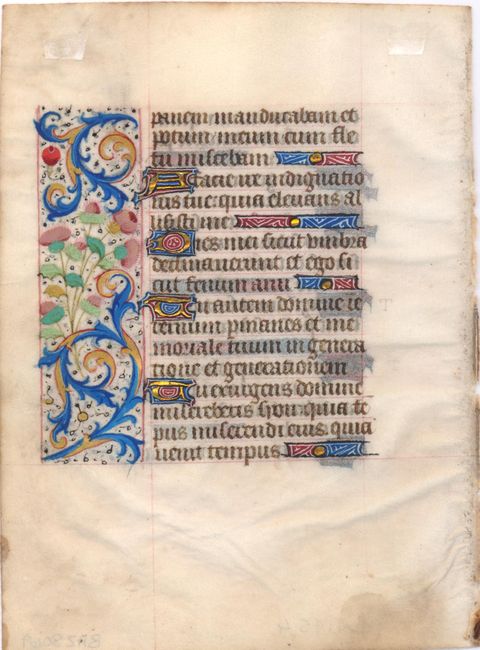 panem manducabam et
potum meum cum fle
tu miscebam
A facie ire indignatio
nis tue: quia elevans al
lisisti me
Dies mei sicut umbra
declinaverunt et ego si
cut fenum arui
Tu autem domine in
ternum permanes et me
moriale tuum in genera
tione et generationem
Tu exurgens domine
misereberis syon: quia te
pus miserendi eius. quia
venit tempus